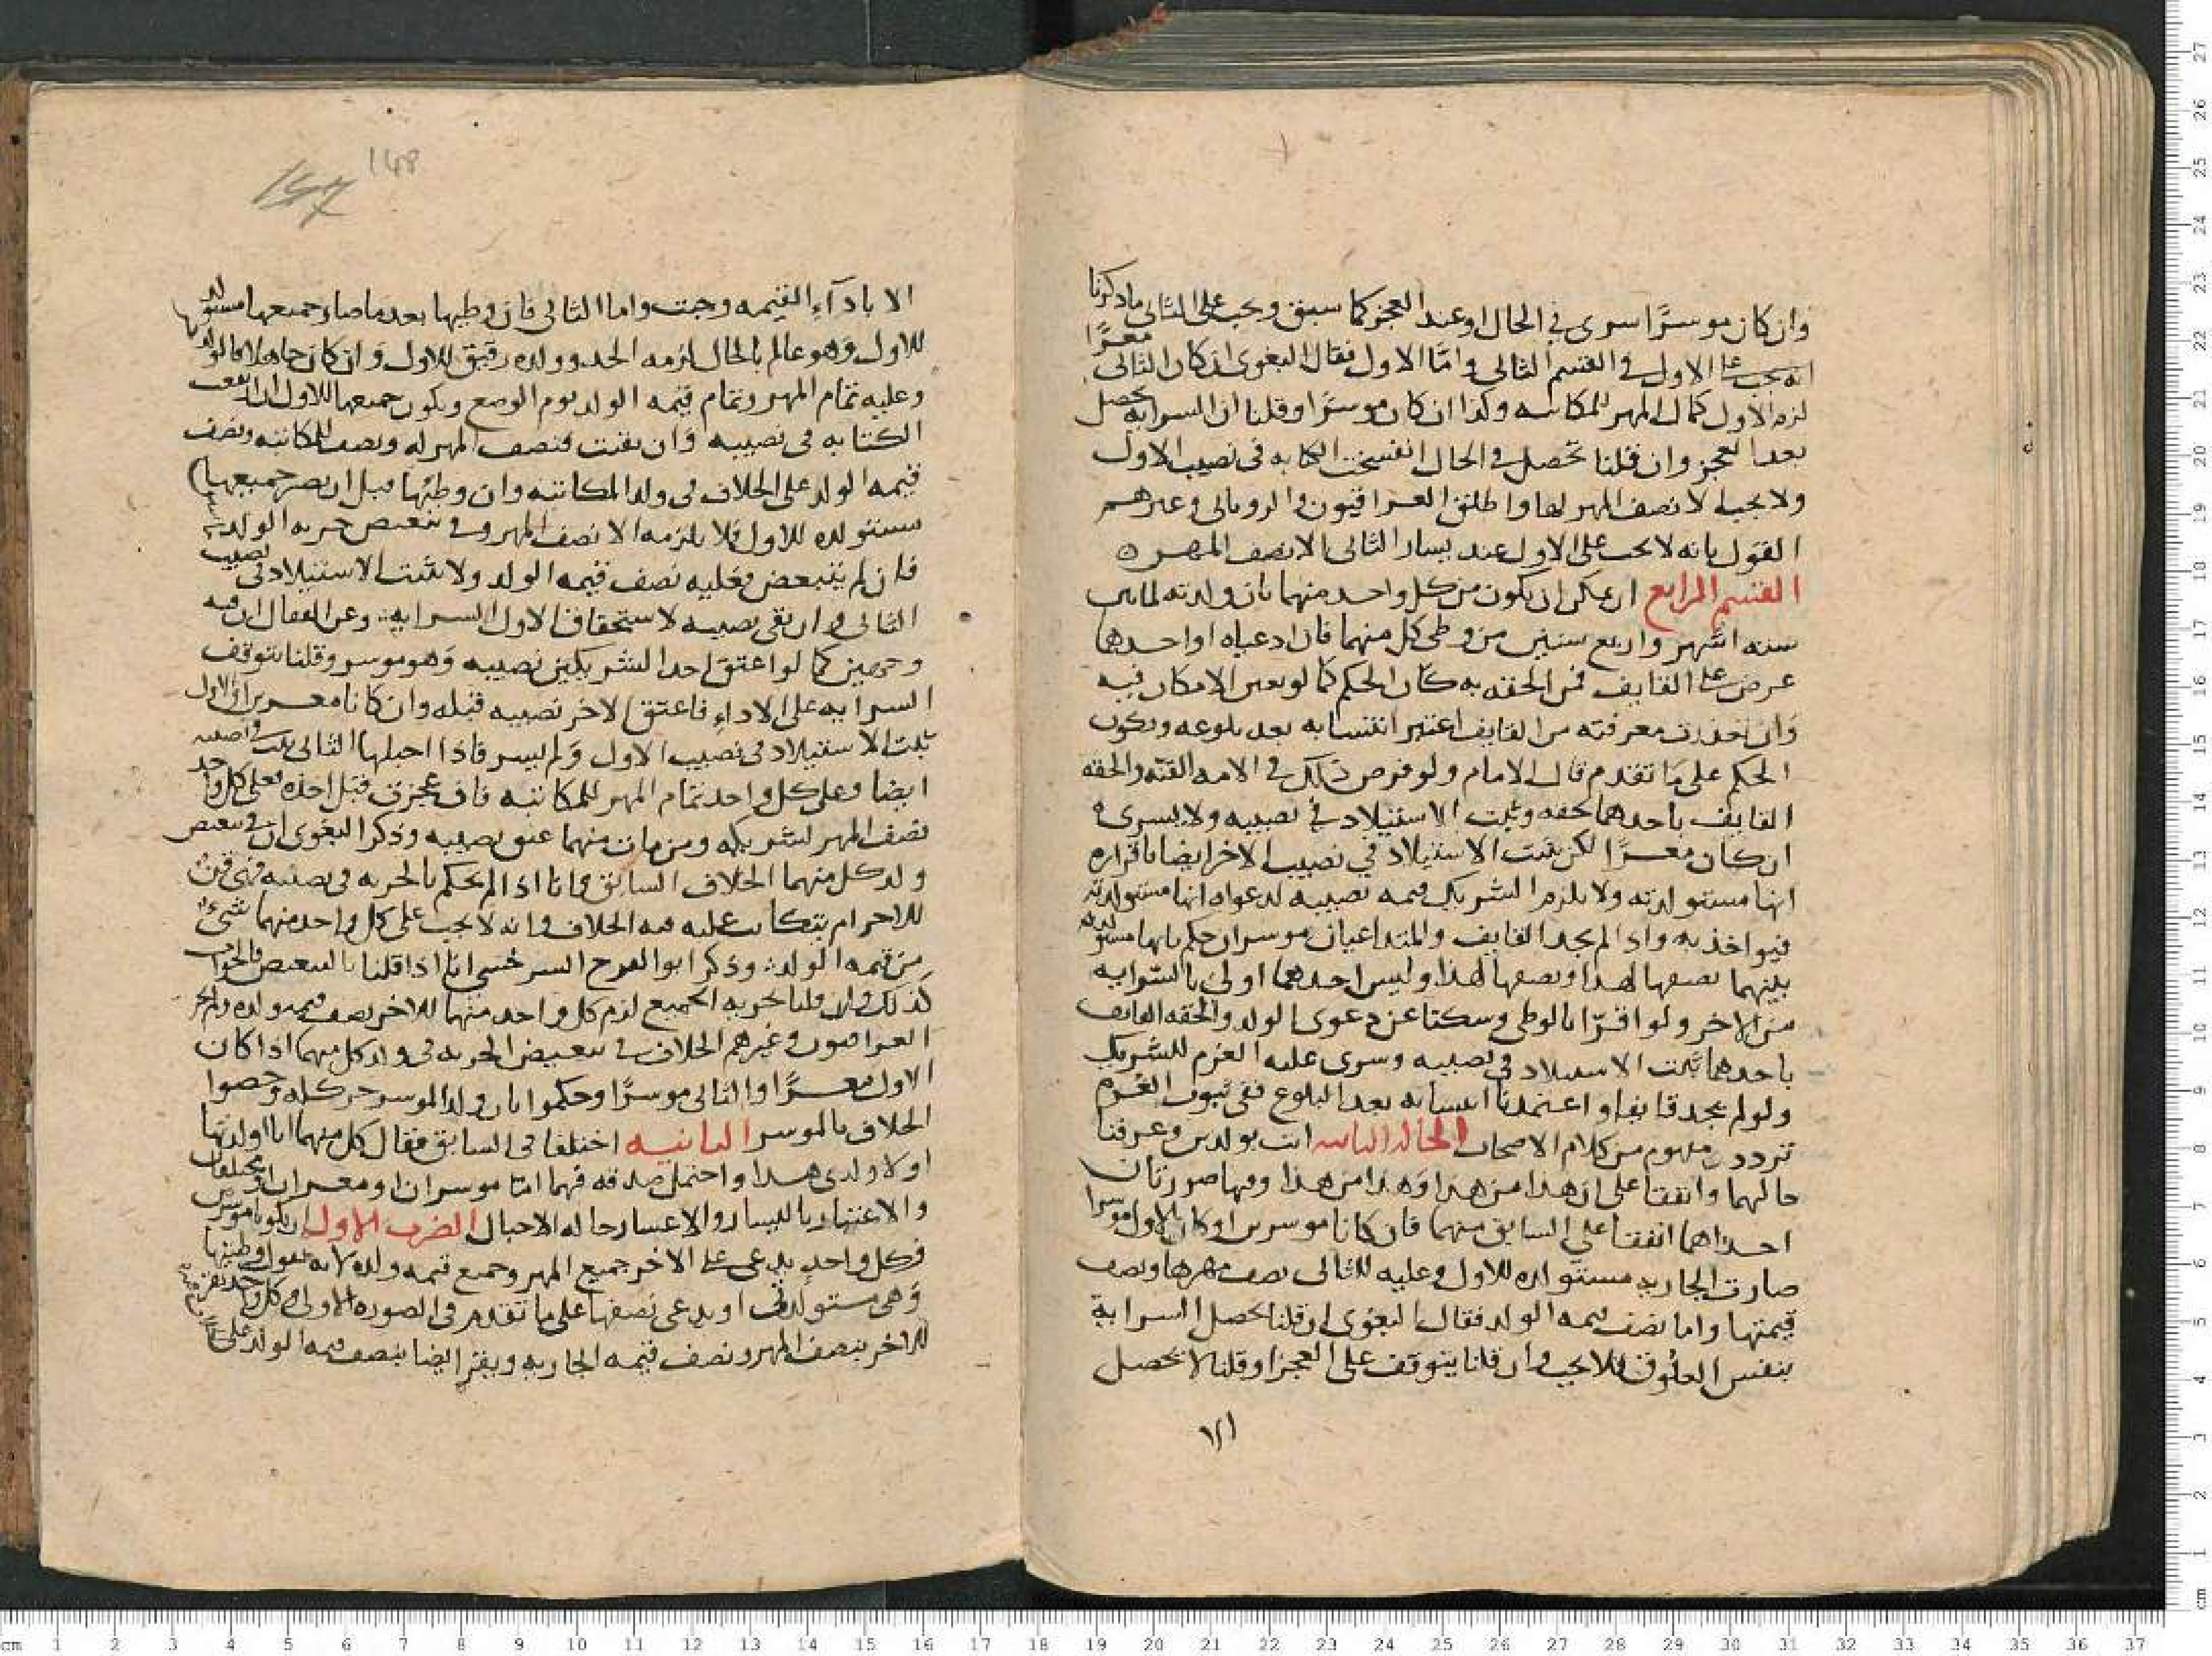 وان كان موسرًا سرى في الحال او عند العجز كما سبق ويجب على الثاني ما ذكرنا
انه يجب على الاول في القسم الثاني واما الاول فقال البغوي ان كان الثاني معسرًا
لزم الاول كمال المهر للمكاتبه وكذا ان كان موسرًا وقلنا ان السرايه تحصل
بعد العجز وان قلنا تحصل في الحال انفسخت الكتابه في نصيب الاول
ولا يجب الا نصف المهر لها واطلق العراقيون والروياني وغيرهم
القول بانه لا يجب على الاول عند يسار الثاني الا نصف المهر ه
القسم الرابع ان يمكن ان يكون من كل واحد منهما بان ولدته لما بين
سته اشهر واربع سنين من وطئ كل منهما فان ادعياه او احدهما
عرض على القايف فمن الحقه به كان الحكم كما لو تعين الامكان فيه
وان تعذرت معرفته من القايف اعتبر انتسابه بعد بلوغه ويكون
الحكم على ما تقدم قال الامام ولو فرض ذلك في الامه القنه والحقه
القايف باحدهما لحقه وثبت الاستيلاد في نصيبه ولا يسري
ان كان معسرًا لكن يثبت الاستيلاد في نصيب الاخر ايضا باقراره
انها مستولدته ولا يلزم الشريك قيمه نصيبه لدعواه انها مستولدته
فيواخذ به واذا لم يجد القايف والمتداعيان موسران حكم بانها مستولده
بينهما نصفها لهذا ونصفها لهذا وليس احدهما اولى بالسرايه
من الاخر ولو اقرّا بالوطئ وسكتا عن دعوى الولد والحقه القايف
باحدهما ثبت الاستيلاد في نصيبه وسرى عليه الغرم للشريك
ولو لم يجد قايفا واعتمدنا انتسابه بعد البلوغ ففي ثبوت الغرم
تردد مفهوم من كلام الاصحاب الحاله الثانيه اتت بولدين وعرفنا
حالهما واتفقا على ان هذا من هذا وهذا من هذا وفيها صورتان
احداهما اتفقا على السابق منهما فان كانا موسرين او كان الاول موسرا
صارت الجاريه مستولده للاول وعليه للثاني نصف مهرها ونصف
قيمتها واما نصف قيمه الولد فقال البغوي ان قلنا تحصل السرايه
بنفس العلوق فلا يجب وان قلنا يتوقف على العجز او قلنا لا تحصل
الا
148
147
الا باداء القيمه وجبت واما الثاني فان وطيها بعد ما صار جميعها مستولده
للاول وهو عالم بالحال لزمه الحد وولده رقيق للاول وان كان جاهلا فالولد
وعليه تمام المهر وتمام قيمه الولد يوم الوضع ويكون جميعها للاول ان ارتفعت
الكتابه في نصيبه وان بقيت فنصف المهر له ونصف للمكاتبه ونصف
قيمه الولد على الخلاف في ولد المكاتبه وان وطئها قبل ان يصير جميعها
مستولده للاول فلا يلزمه الا نصف المهر وفي تبعض حريه الولد
فان لم يتبعض فعليه نصف قيمه الولد ولا يثبت الاستيلاد في نصيب
الثاني وان بقي نصيبه لاستحقاق الاول السرايه وعن القفال ان فيه
وجهين كما لو اعتق احد الشريكين نصيبه وهو موسر وقلنا تتوقف
السرايه على الاداء فاعتق الاخر نصيبه قبله وان كانا معسرين او الاول
ثبت الاستيلاد في نصيب الاول ولم يسر فاذا احبلها الثاني ثبت في نصيبه
ايضا وعلى كل واحد تمام المهر للمكاتبه فان عجزت قبل اخذه فعلى كل واحد
نصف المهر لشريكه ومن مات منهما عتق نصيبه وذكر البغوي ان في تبعض
ولد كل منهما الخلاف السابق وانا اذا لم نحكم بالحريه في نصفه فهو قن
للاخر ام يتكاتب عليه فيه الخلاف وانه لا يجب على كل واحد منهما شيء
من قيمه الولد وذكر ابو الفرج السرخسي انا اذا قلنا بالتبعض فالجواب
كذلك وان قلنا بحريه الجميع لزم كل واحد منهما للاخر نصف قيمه ولده
العراقيون وغيرهم الخلاف في تبعيض الحريه في ولد كل منهما اذا كان
الاول معسرًا والثاني موسرًا وحكموا بان ولد الموسر حر كله وخصوا
الخلاف بالموسر الثانيه اختلفا في السابق فقال كل منهما انا اولدتها
اولا ولدي هذا واحتمل صدقه فهما اما موسران او معسران او مختلفان
والاعتبار باليسار والاعسار حاله الاحبال الضرب الاول ان يكونا موسرين
فكل واحد يدعي على الاخر جميع المهر وجميع قيمه ولده لانه يقول وطئها
وهي مستولدتي او يدعي نصفها على ما تقدم في الصوره الاولى وكل واحد يقر
للاخر بنصف المهر ونصف قيمه الجاريه ويقر ايضا بنصف قيمه الولد على